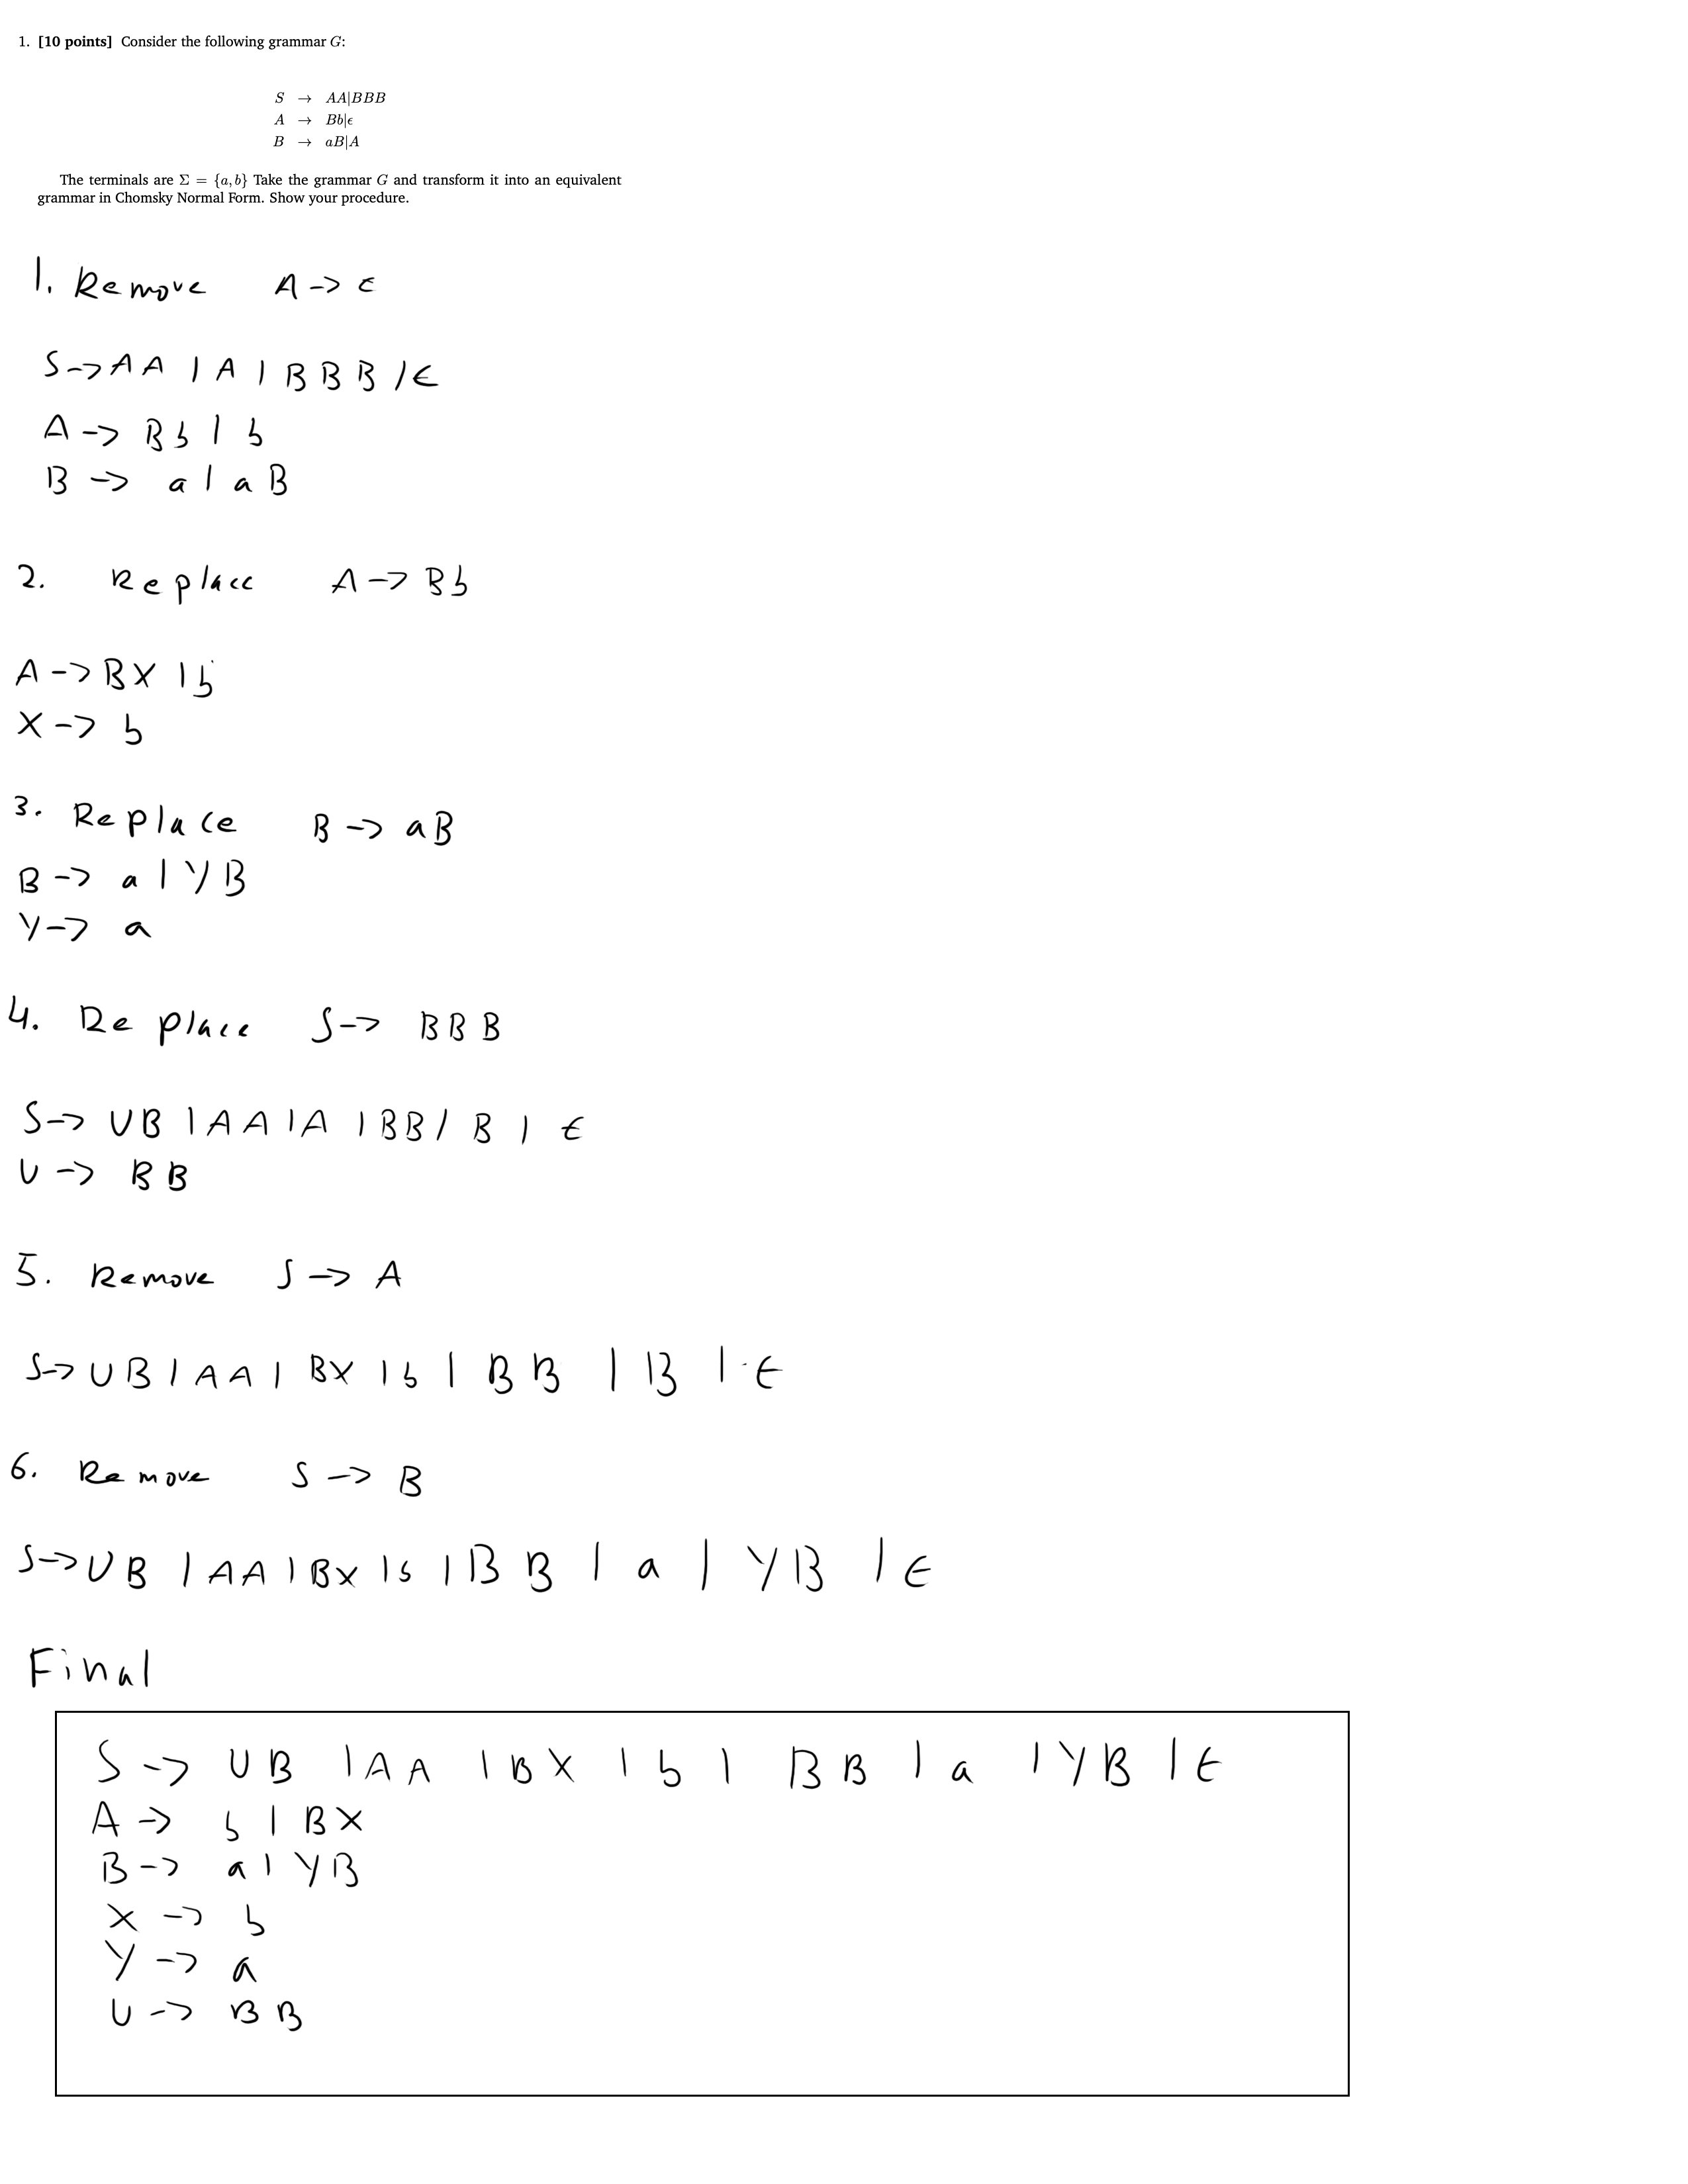 1. [10 points] Consider the following grammar G:
S → AA|BBB
A → Bb|ϵ
B → aB|A
The terminals are Σ = {a, b} Take the grammar G and transform it into an equivalent
grammar in Chomsky Normal Form. Show your procedure.
1. Remove A -> ϵ
S -> A A | A | B B B | ϵ
A -> B b | b
B -> a | a B
2. Replace A -> B b
A -> B X | b
X -> b
3. Replace B -> a B
B -> a | Y B
Y -> a
4. Replace S -> B B B
S -> U B | A A | A | B B | B | ϵ
U -> B B
5. Remove S -> A
S -> U B | A A | B X | b | B B | B | ϵ
6. Remove S -> B
S -> U B | A A | B X | b | B B | a | Y B | ϵ
Final
S -> U B | A A | B X | b | B B | a | Y B | ϵ
A -> b | B X
B -> a | Y B
X -> b
Y -> a
U -> B B